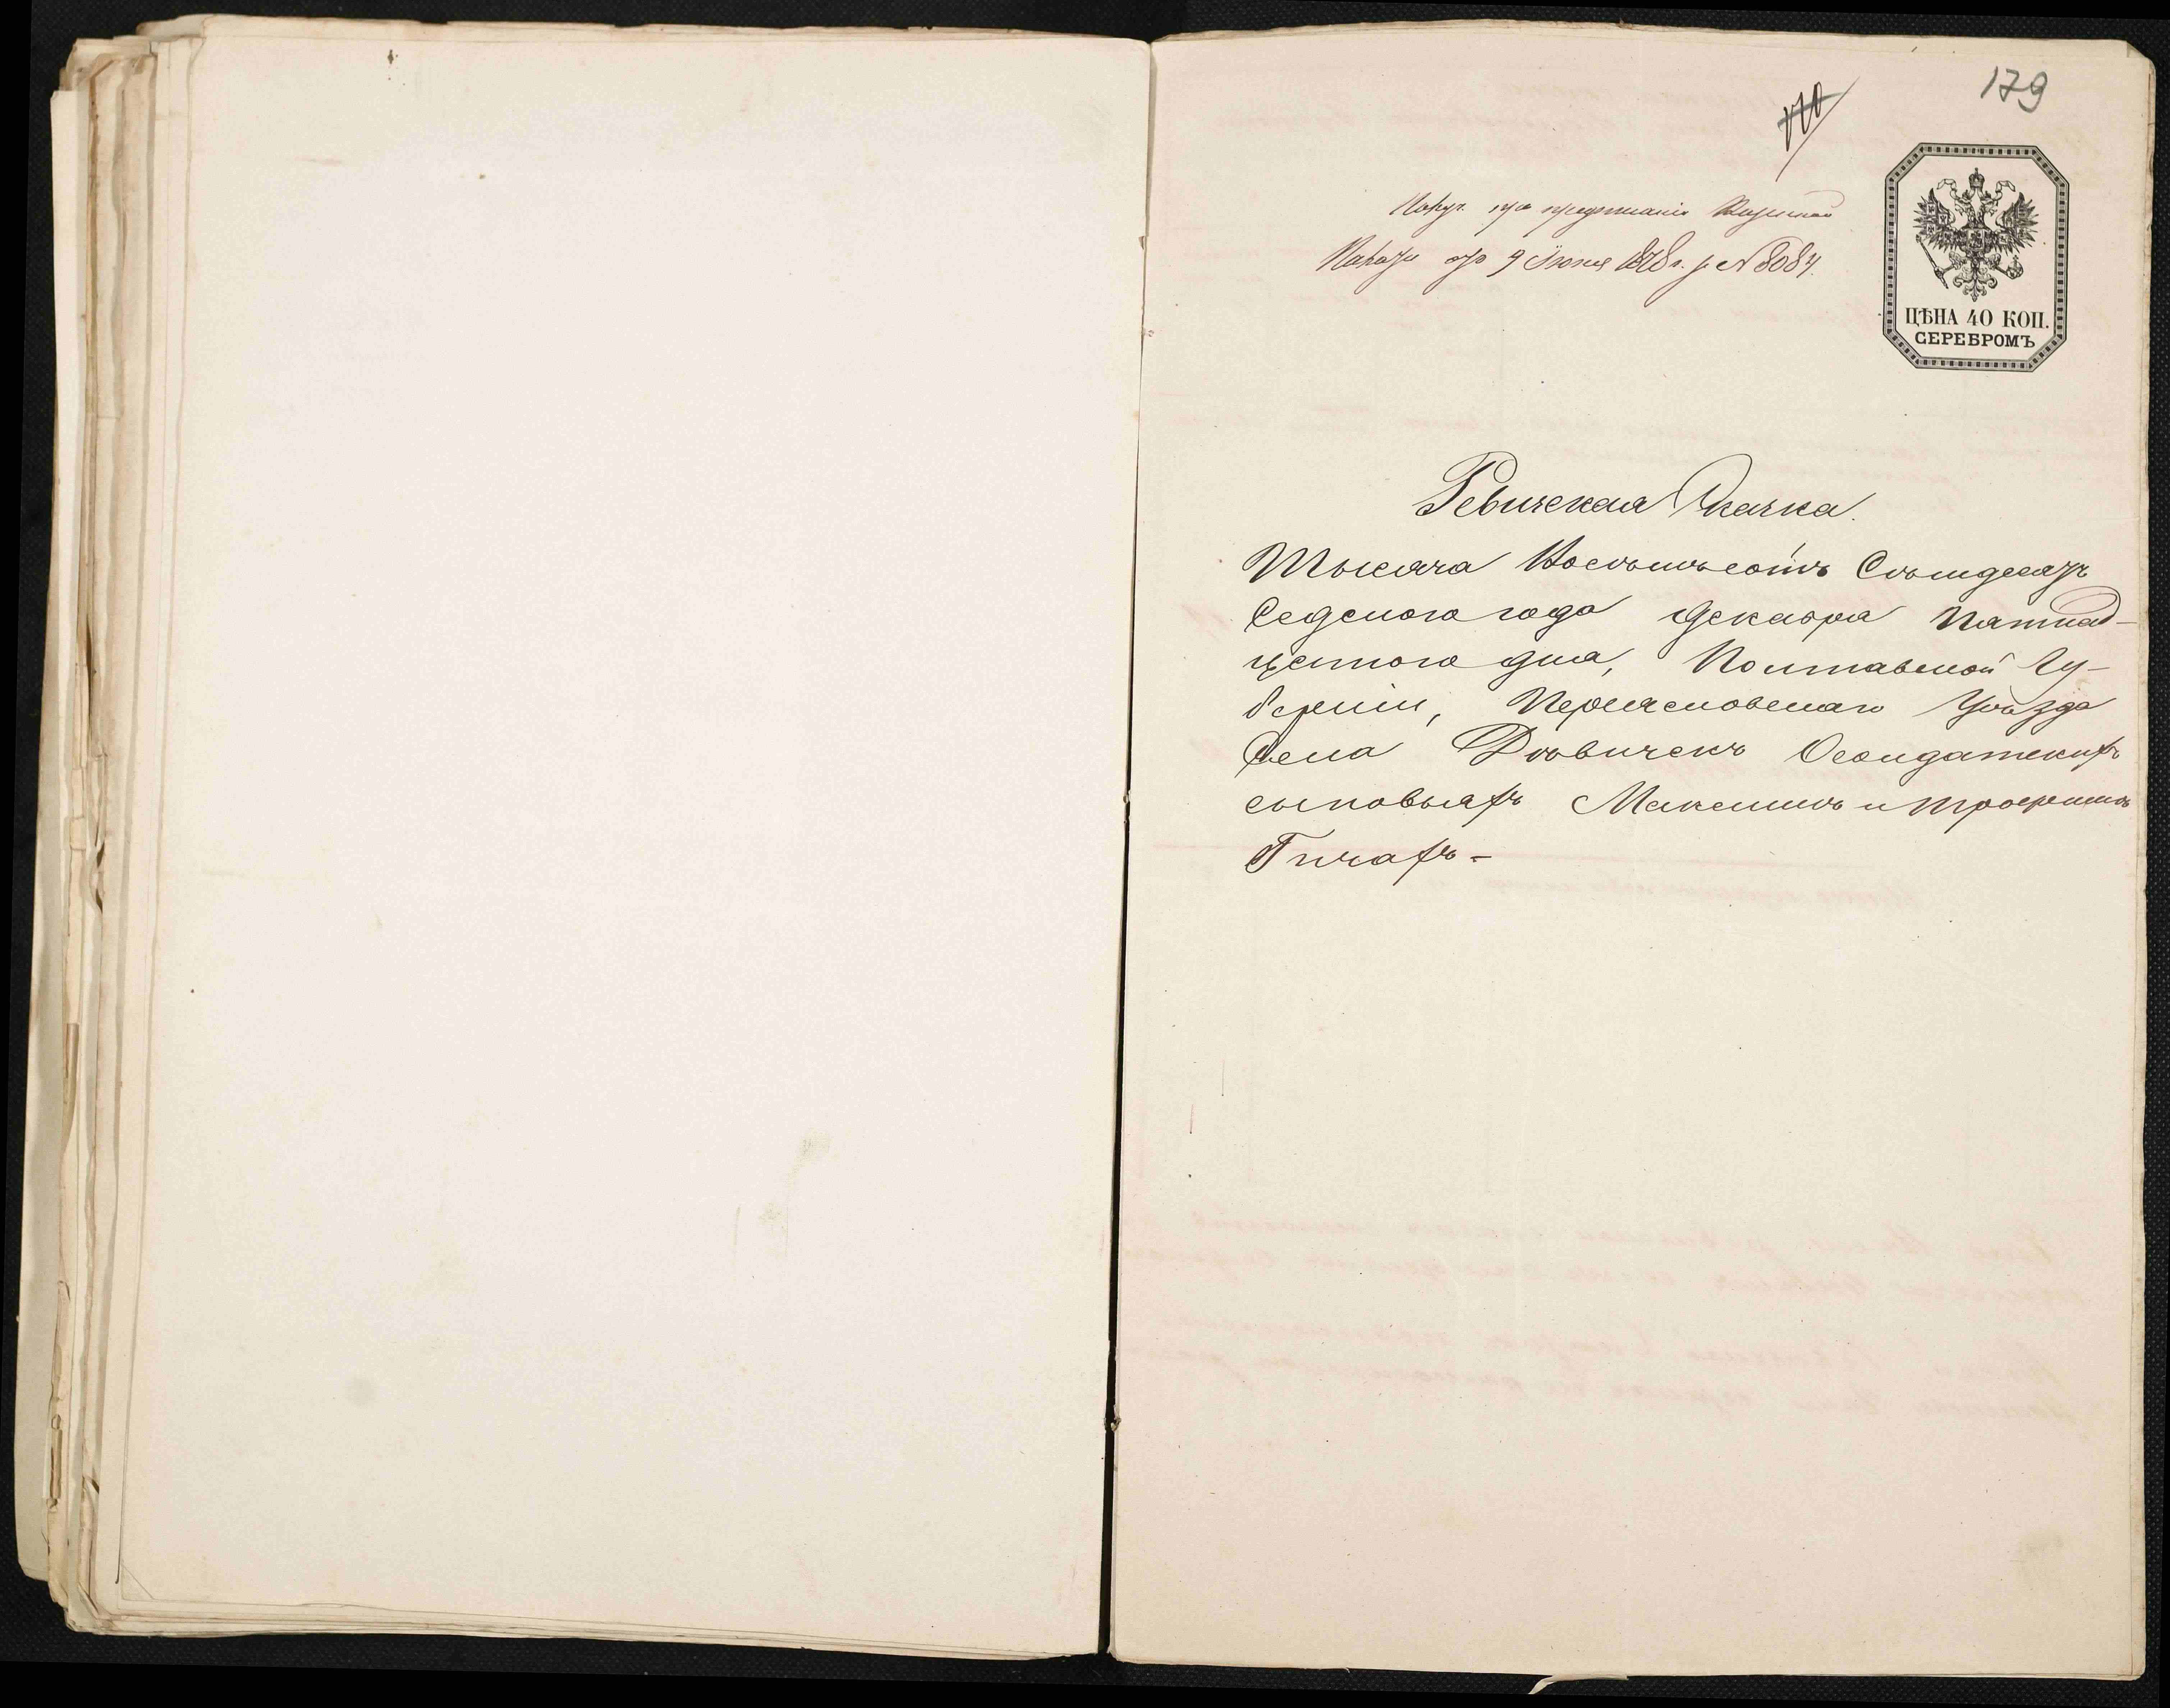 179
110
Получ. при предписаніи Казенной
Палаты отъ 9 Іюня 1878 г. за № 8084.
ЦѢНА 40 КОП.
СЕРЕБРОМЪ
Ревизская Сказка.
Тысяча Восѣмьсотъ Сѣмдесятъ
Седмого года Декабря Пятнад-
цятого дня, Полтавской Гу-
берніи, Переясловскаго Уѣзда
Села Дѣвичекъ
сыновьяхъ Максимѣ и Трофимѣ